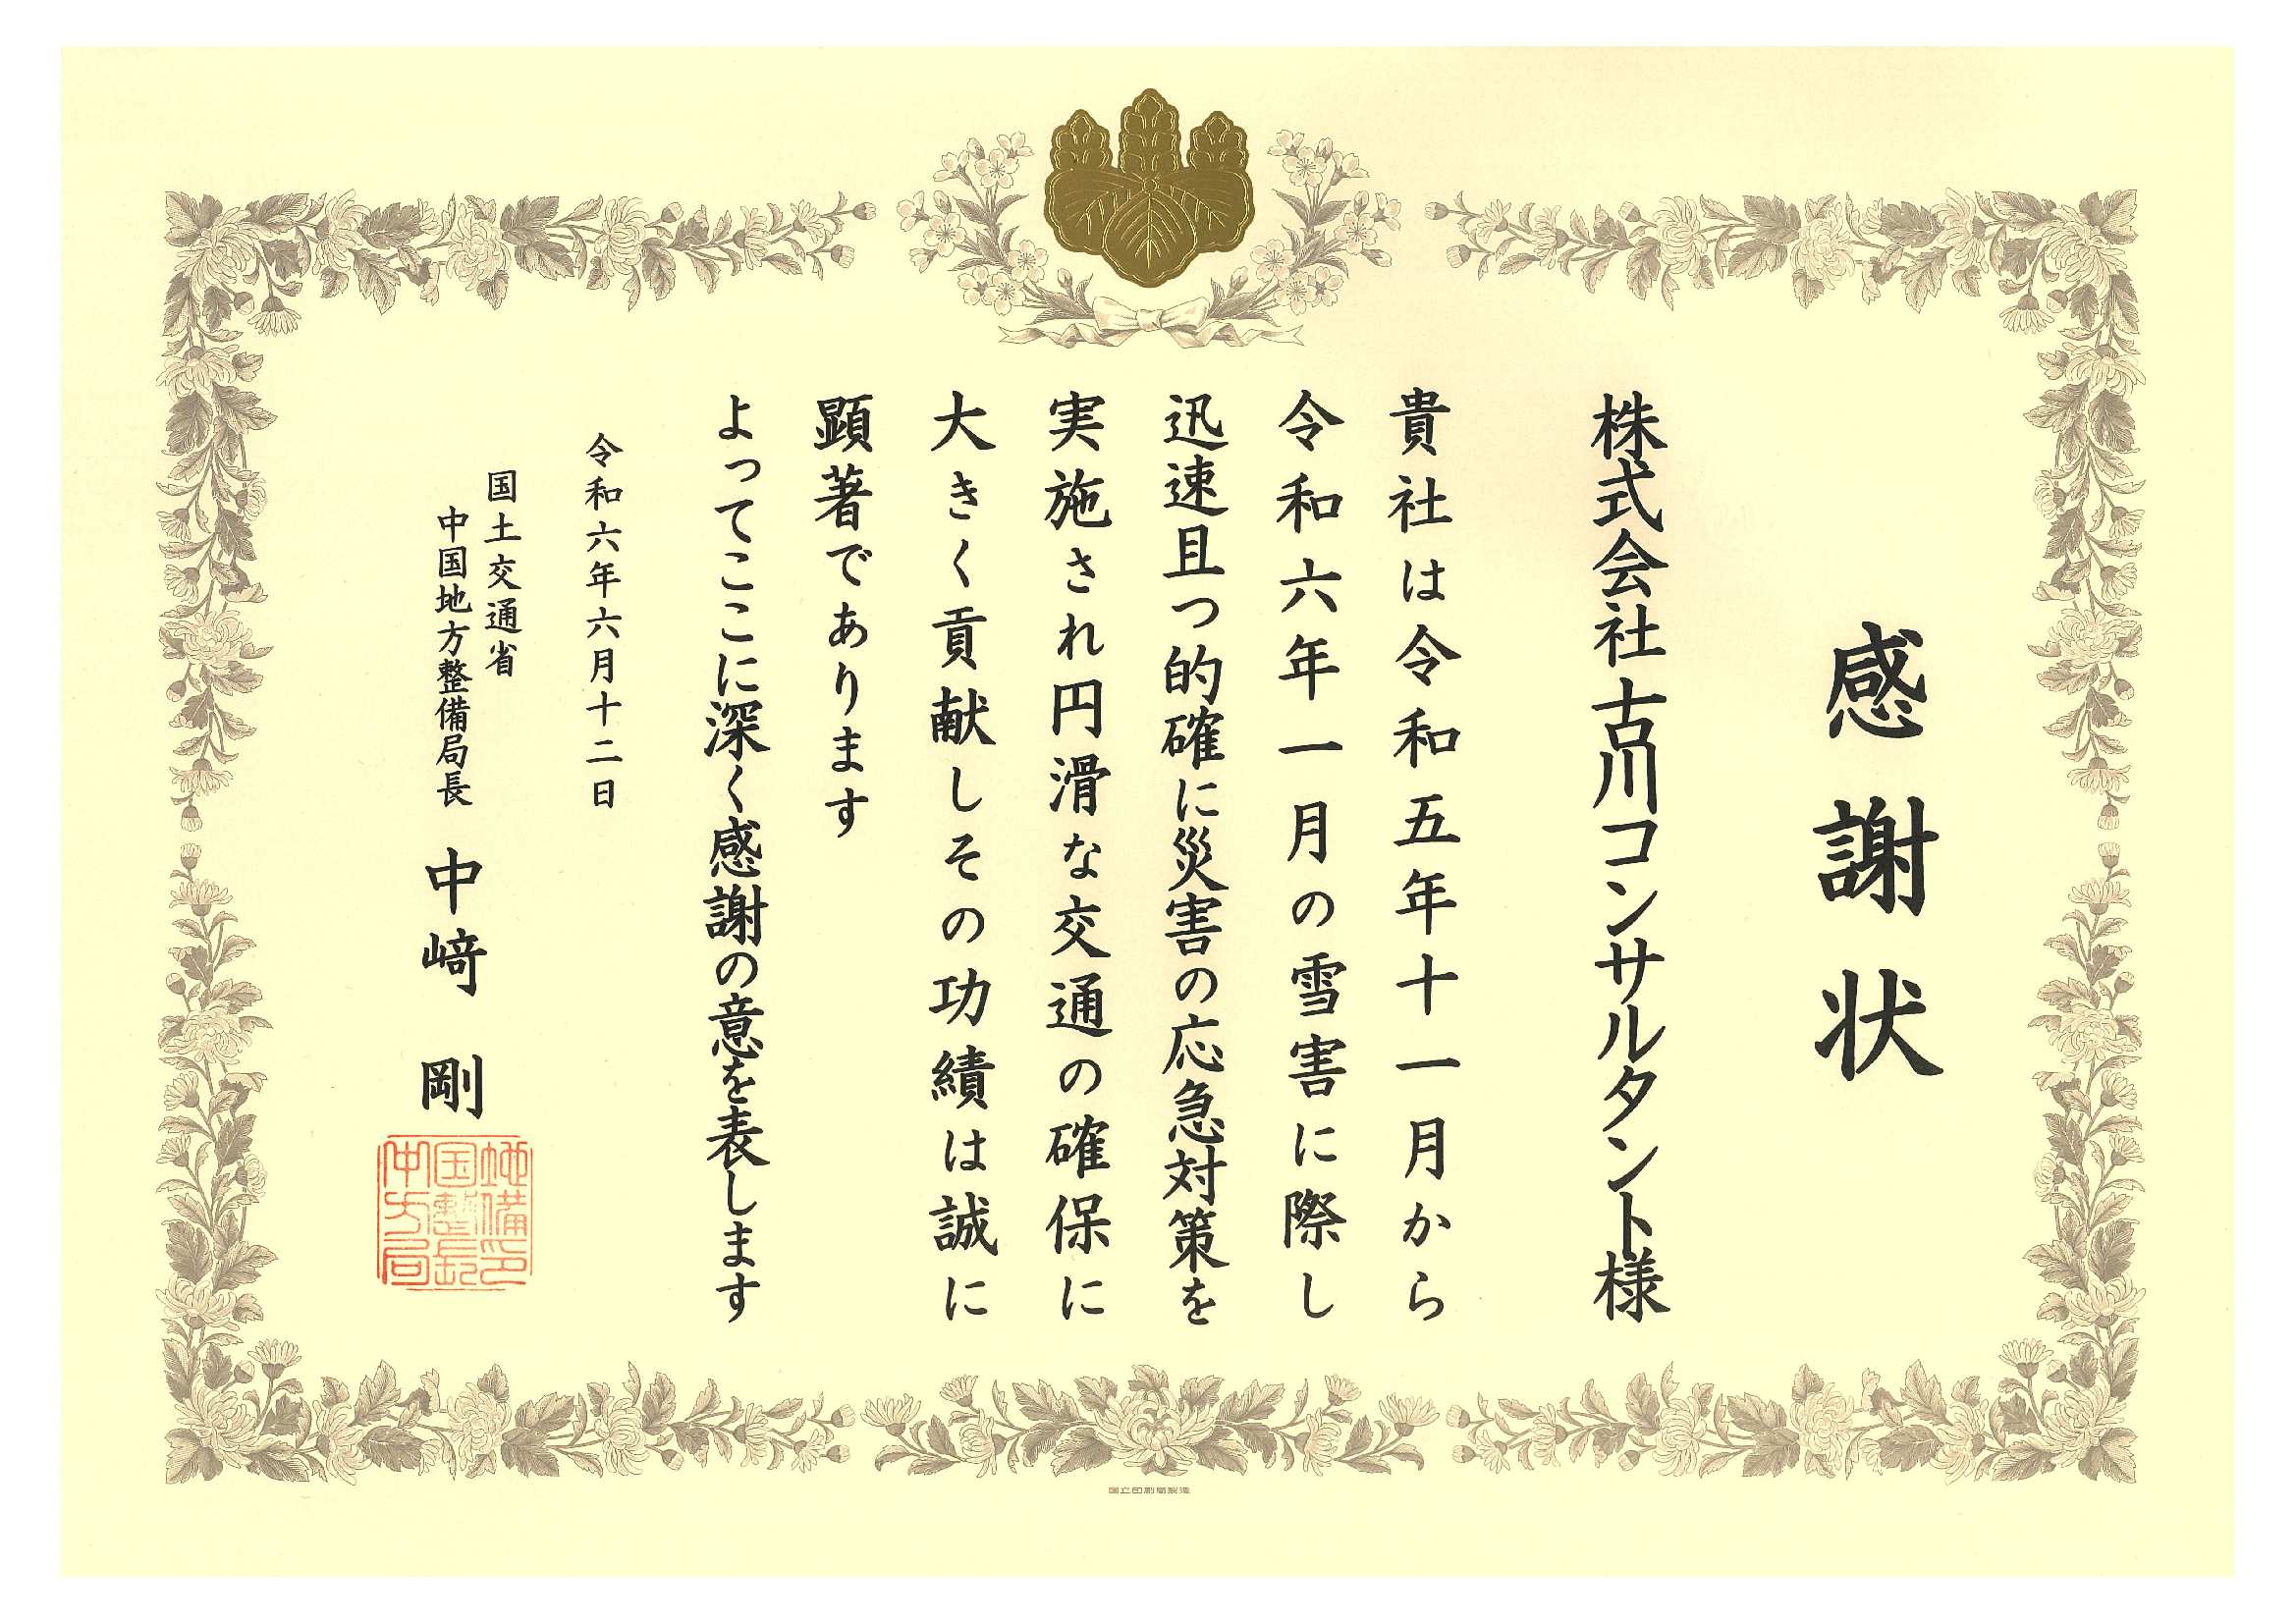 感謝状
株式会社古川コンサルタント様
貴社は令和五年十一月から
令和六年一月の雪害に際し
迅速且つ的確に災害の応急対策を
実施され円滑な交通の確保に
大きく貢献しその功績は誠に
顕著であります
よってここに深く感謝の意を表します
令和六年六月十二日
国土交通省
中国地方整備局長 中﨑 剛
中国地
方整備
局長印
国立印刷局製造